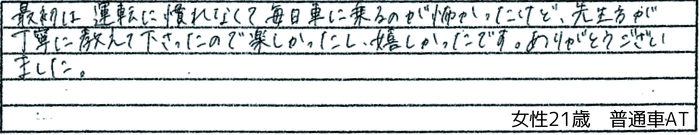 最初は運転に慣れなくて毎日車に乗るのが怖かったけど、先生方が
丁寧に教えて下さったので楽しかったし、嬉しかったです。ありがとうござい
ました。
女性21歳　普通車AT